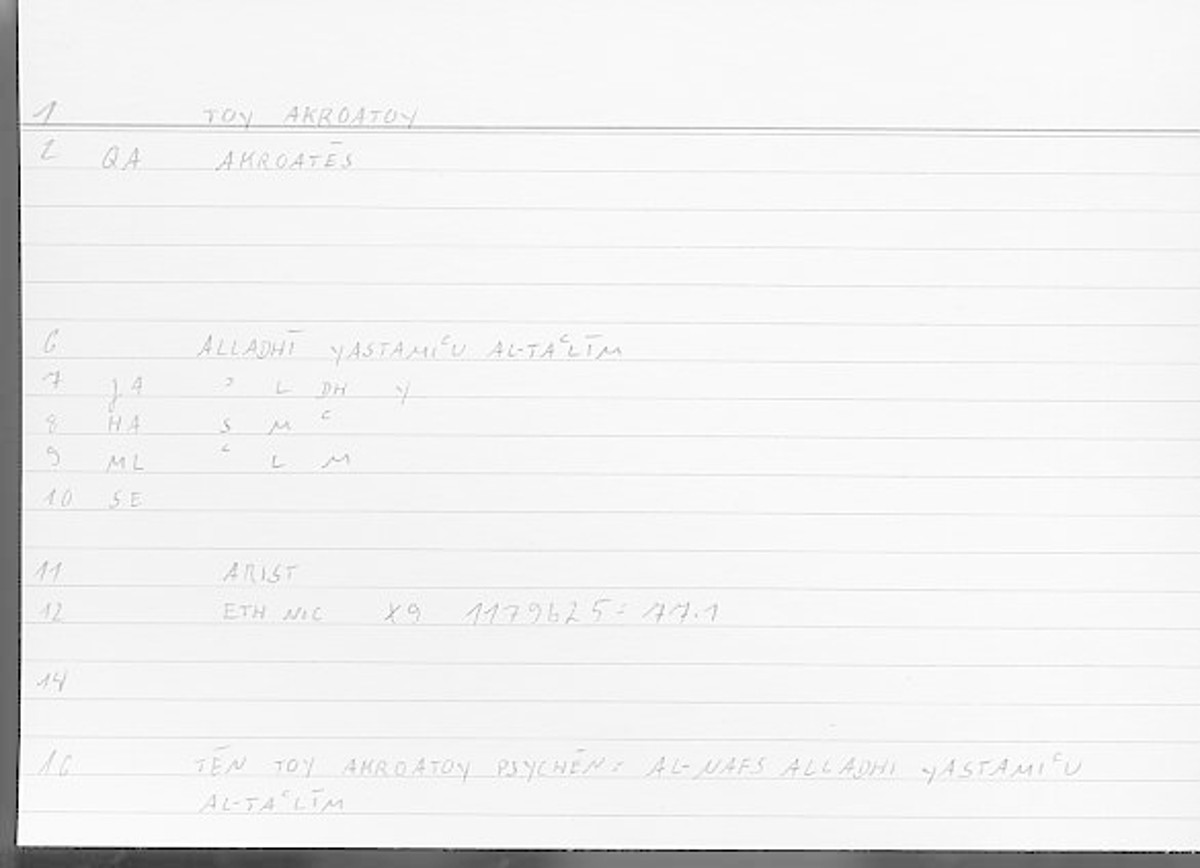 1 TOY AKROATOY
2 QA AKROATĒS
6 ALLADHĪ YASTAMIᶜU AL-TAᶜLĪM
7 JA ʾ L DH Y
8 HA S M ᶜ
9 ML ᶜ L M
10 SE
11 ARIST
12 ETH NIC X9 1179b25 = 77.1
14
16 TĒN TOY AKROATOY PSYCHĒN = AL-NAFS ALLADHI YASTAMIᶜU
AL-TAᶜLĪM